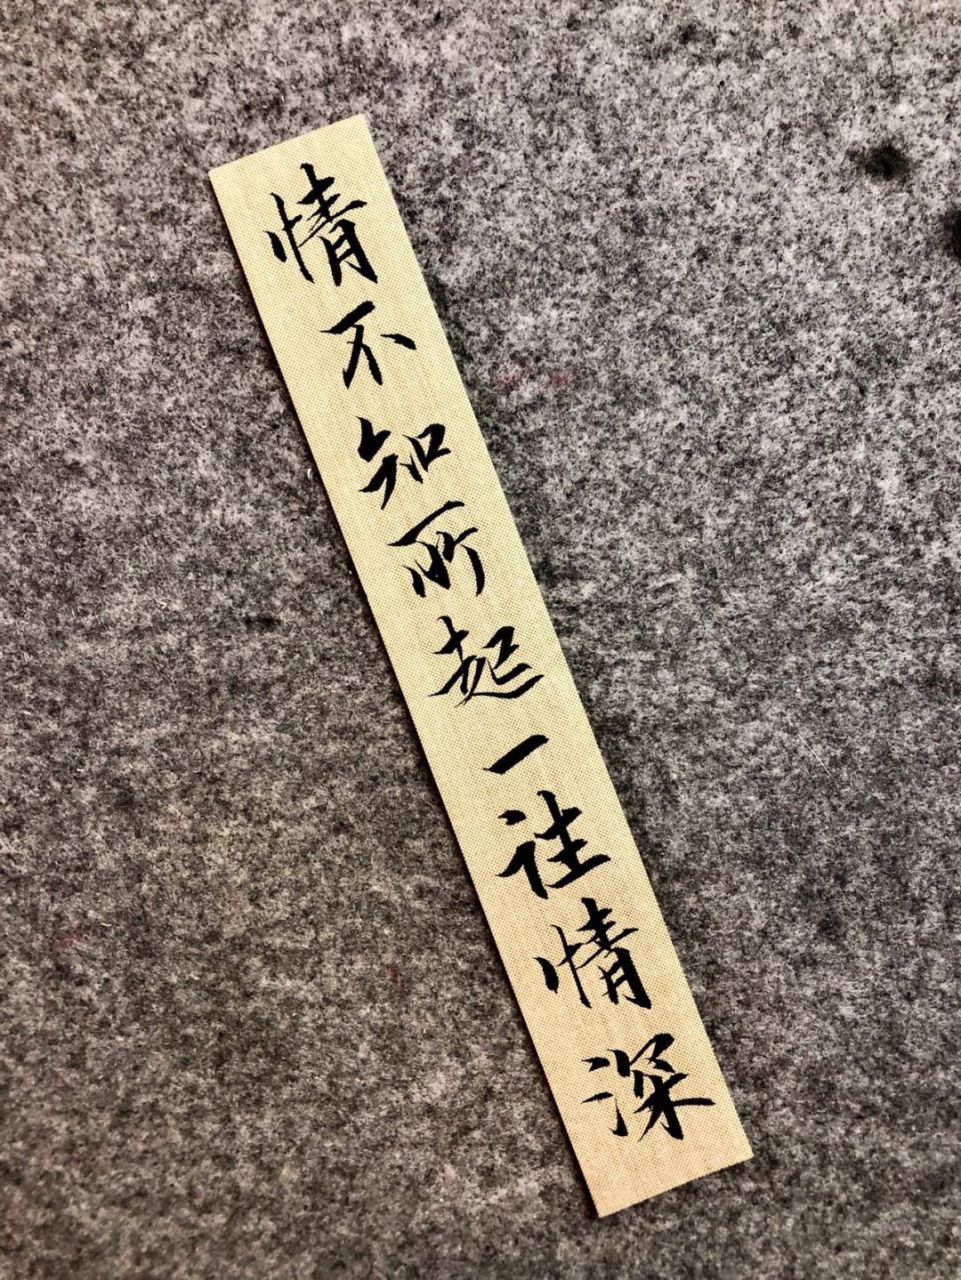 情不知所起一往情深